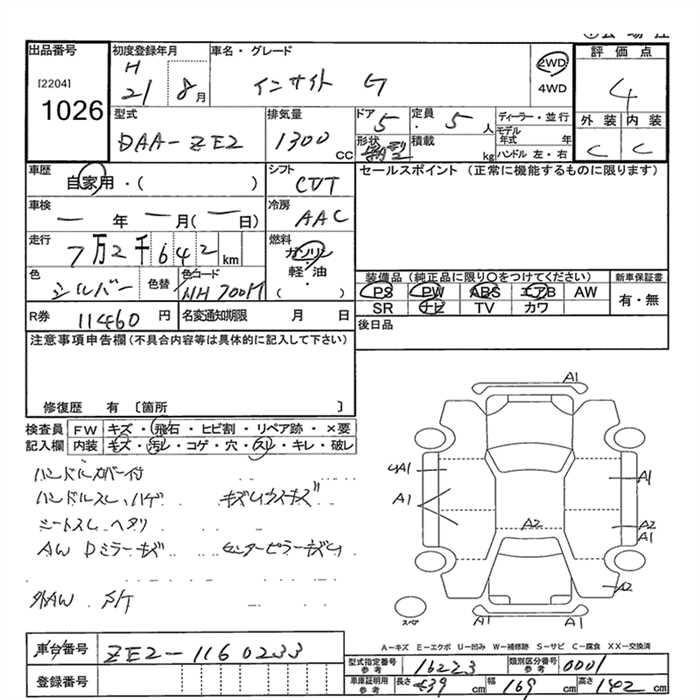 出品番号 初度登録年月 車名・グレード 評価点
[2204] H 21 8月 インサイト G 2WD 4WD 4
1026
型式 排気量 ドア 定員 ディーラー・並行 外装 内装
DAA-ZE2 1300 CC 5 5人 モデル年式 年 C C
形状 積載 kg ハンドル 左・右
車歴 自家用・( ) シフト CVT セールスポイント (正常に機能するものに限ります)
車検 年 月( 日) 冷房 AAC
走行 7万2千642km 燃料 ガソリン・軽油・( )
色 シルバー 色替 色コード NH700M
装備品 (純正品に限り○をつけてください) 新車保証書
PS PW ABS エアB AW 有・無
SR ナビ TV カワ
R券 11460円 名変通知期限 月 日 後日品
注意事項申告欄(不具合内容等は具体的に記入して下さい)
修復歴 有 〔箇所 〕
検査員 FW キズ・飛石・ヒビ割・リペア跡・×要
記入欄 内装 キズ・汚レ・コゲ・穴・スレ・キレ・破レ
ハンドルカバー付
ハンドルスレ ハゲ
シートスレ ヘタリ
AW Dミラーキズ センターピラーキズ
外AW
A1
4A1 A1
A1
A2 A2
A1
A2
スペア A1 A1
A-キズ E-エクボ U-凹み W-補修跡 S-サビ C-腐食 XX-交換済
車台番号 ZE2-1160233
型式指定番号 参考 16223 類別区分番号 参考 0001
登録番号 車庫証明用 参考 長さ 439cm 幅 169cm 高さ 142cm